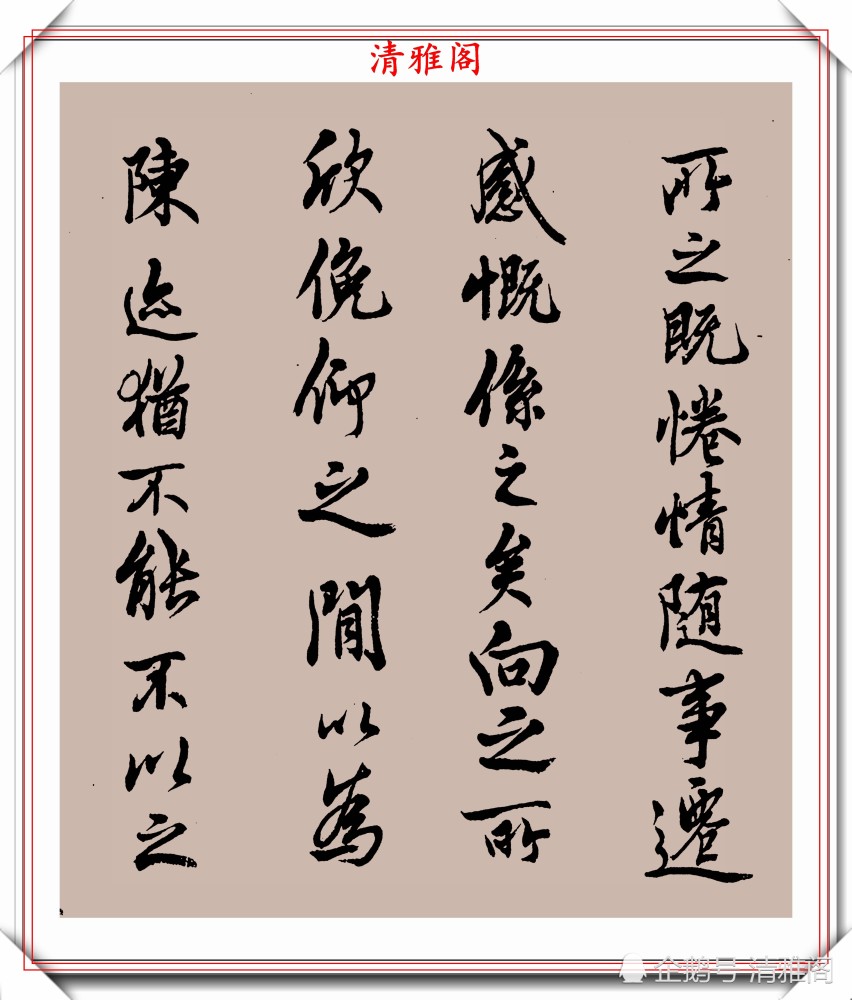 清雅阁
所之既惓情随事遷
感慨係之矣向之所
欣俛仰之間以為
陳迹猶不能不以之
企鹅号 清雅阁